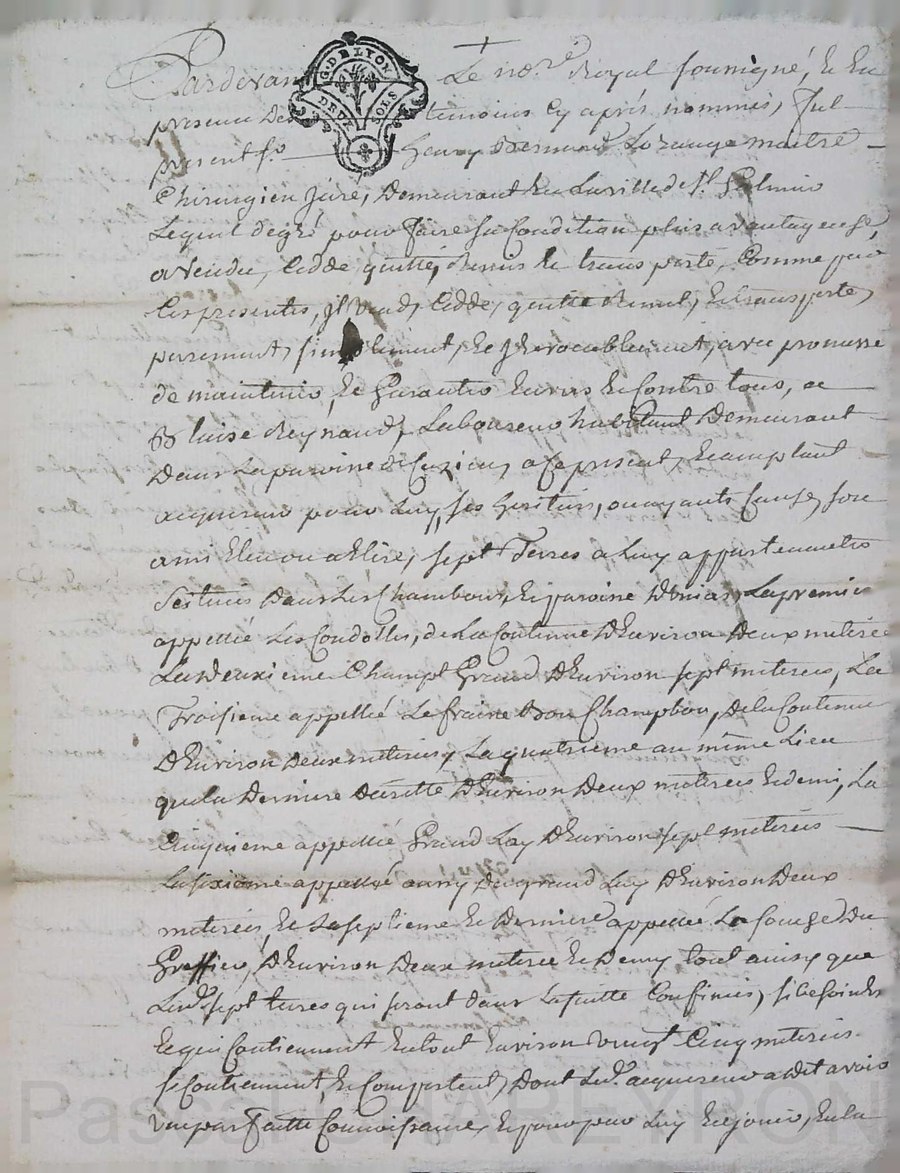 G. DE LYON
DEUX SOLS
Pardevant Le no.re Royal soussigné, Et En
presence des temoins cy aprés nommés, fut
present s.r Henry Lozange maitre
Chirurgien Juré, Demeurant En La ville de S.t
Lequel de gré pour faire sa Condition plus avantageuse,
a Vendu, Ceddé, quitté, Remis Et transporté, Comme par
Ces presentes, Jl Vend, Cedde, quitte Remet, Et transporte,
purement, simplement, Et Jrrevocablement, avec promesse
de maintenir, Et Garantir Envers Et Contre tous, a
Blaise Reynaud, Laboureur habitant Demeurant
Dans La paroisse de Cuzieu, a Ce present, Et acceptant
acquereur pour Luy, ses heritiers, ou ayants Cause, son
ami Elu ou a Elire, sept Terres a Luy appartenantes
Scituées Dans Les Chambons, Et paroisse La premiere
appellée Les Condolles, de La Contenue D'Environ Deux meterées
La Deuxieme Champt Grand, D'Environ sept meterées, La
Troisieme appellée Le fraine Chambon, De la Contenue
D'Environ deux meterées, La quatrieme au même Lieu
que la Derniere D'Environ Deux meterées Et demi, La
Cinquieme appellée Grand Lay D'Environ sept meterées
La sixieme appellée aussy Du grand Lay D'Environ Deux
meterées, Et La septieme Et Derniere appellée La Du
Greffier, D'Environ Deux meterée Et Demy tout ainsy que
Lesd. sept terres qui seront dans La suitte Confinées, si besoin Est
Et qui Contiennent En tout Environ Vingt Cinq meterées
se Contiennent, Et Comportent, Dont Led. acquereur a dit avoir
Une parfaitte Connoissance, Et pour par Luy En jouir, En la
Pascal CHAREYRON